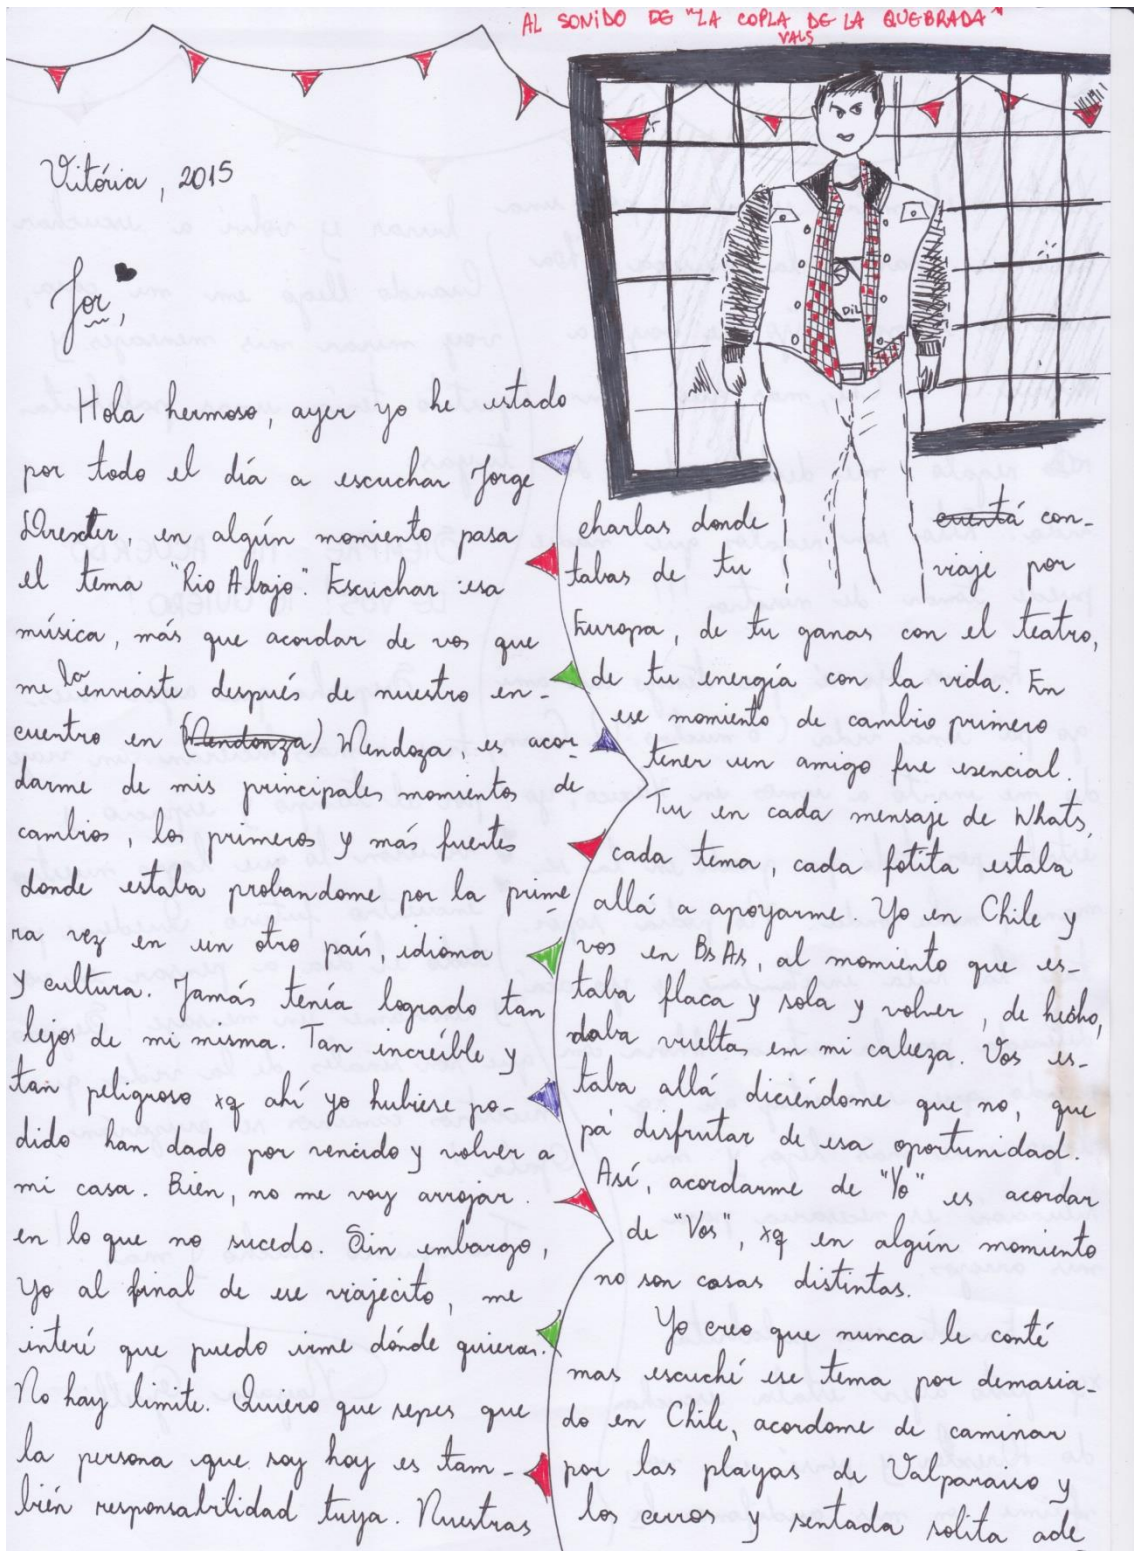 AL SONIDO DE "LA COPLA DE LA QUEBRADA"
VALS
Vitória, 2015
Jor,
Hola hermoso, ayer yo he estado
por todo el día a escuchar Jorge
Drexter, en algún momiento pasa
el tema "Rio Abajo". Escuchar esa
música, más que acordar de vos que
me la enviaste después de nuestro en-
cuentro en (Mendonza) Mendoza, es acor
darme de mis principales momientos de
cambios, los primeros y más fuertes
donde estaba probandome por la prime
ra vez en un otro país, idioma
y cultura. Jamás tenía logrado tan
lejos de mi misma. Tan increíble y
tan peligroso xq ahí yo hubiese po-
dido han dado por vencido y volver a
mi casa. Bien, no me voy arrojar
en lo que no sucedo. Sin embargo,
yo al final de ese viajecito, me
interé que puedo irme dónde quieras.
No hay limite. Quiero que sepes que
la persona que soy hoy es tam-
bién responsabilidad tuya. Nuestras
DiL
charlas donde cuentá con-
tabas de tu viaje por
Europa, de tu ganas con el teatro,
de tu energía con la vida. En
ese momiento de cambio primero
tener un amigo fue esencial.
Tu en cada mensaje de Whats,
cada tema, cada fotita estaba
allá a apoyarme. Yo en Chile y
vos en BsAs, al momiento que es-
taba flaca y sola y volver, de hecho,
daba vueltas em mi cabeza. Vos es-
taba allá diciéndome que no, que
pá disfrutar de esa oportunidad.
Así, acordarme de "Yo" es acordar
de "Vos", xq en algún momiento
no son cosas distintas.
Yo creo que nunca le conté
mas escuché ese tema por demasia-
do en Chile, acordome de caminar
por las playas de Valparaiso y
los cerros y sentada solita ade